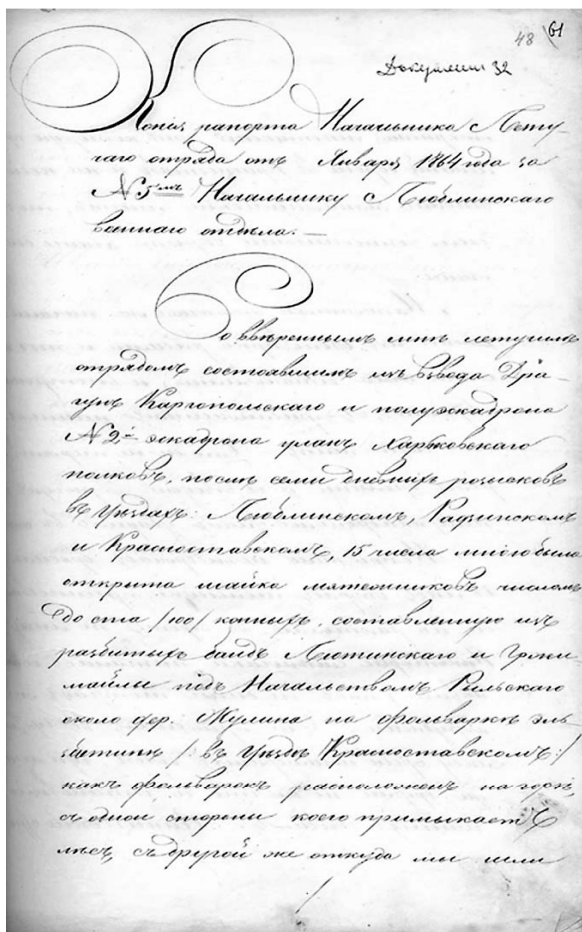 48 61
Документ 32
Копія рапорта Начальника Лету-
чаго отряда отъ Января 1864 года за
№ 5мъ Начальнику Люблинскаго
военнаго отдѣла. —
Со ввѣреннымъ мнѣ летучимъ
отрядомъ состоявшимъ изъ взвода Дра-
гунъ Каргопольскаго и полуэскадрона
№ 2й эскадрона уланъ Харьковскаго
полковъ, послѣ семи дневныхъ розысковъ
въ Уѣздахъ: Люблинскомъ, Радзинскомъ
и Красноставскомъ, 15 числа мною была
открыта шайка мятежниковъ числомъ
до ста /100/ конныхъ, составленную изъ
разбитыхъ бандъ Лютинскаго и
подъ Начальствомъ Рыльскаго
около дер. Жулина на фольваркѣ
/: въ Уѣздѣ Красноставскомъ :/
какъ фольварокъ расположенъ на горѣ,
съ одной стороны коего примыкаетъ
лѣсъ, съ другой же откуда мы шли